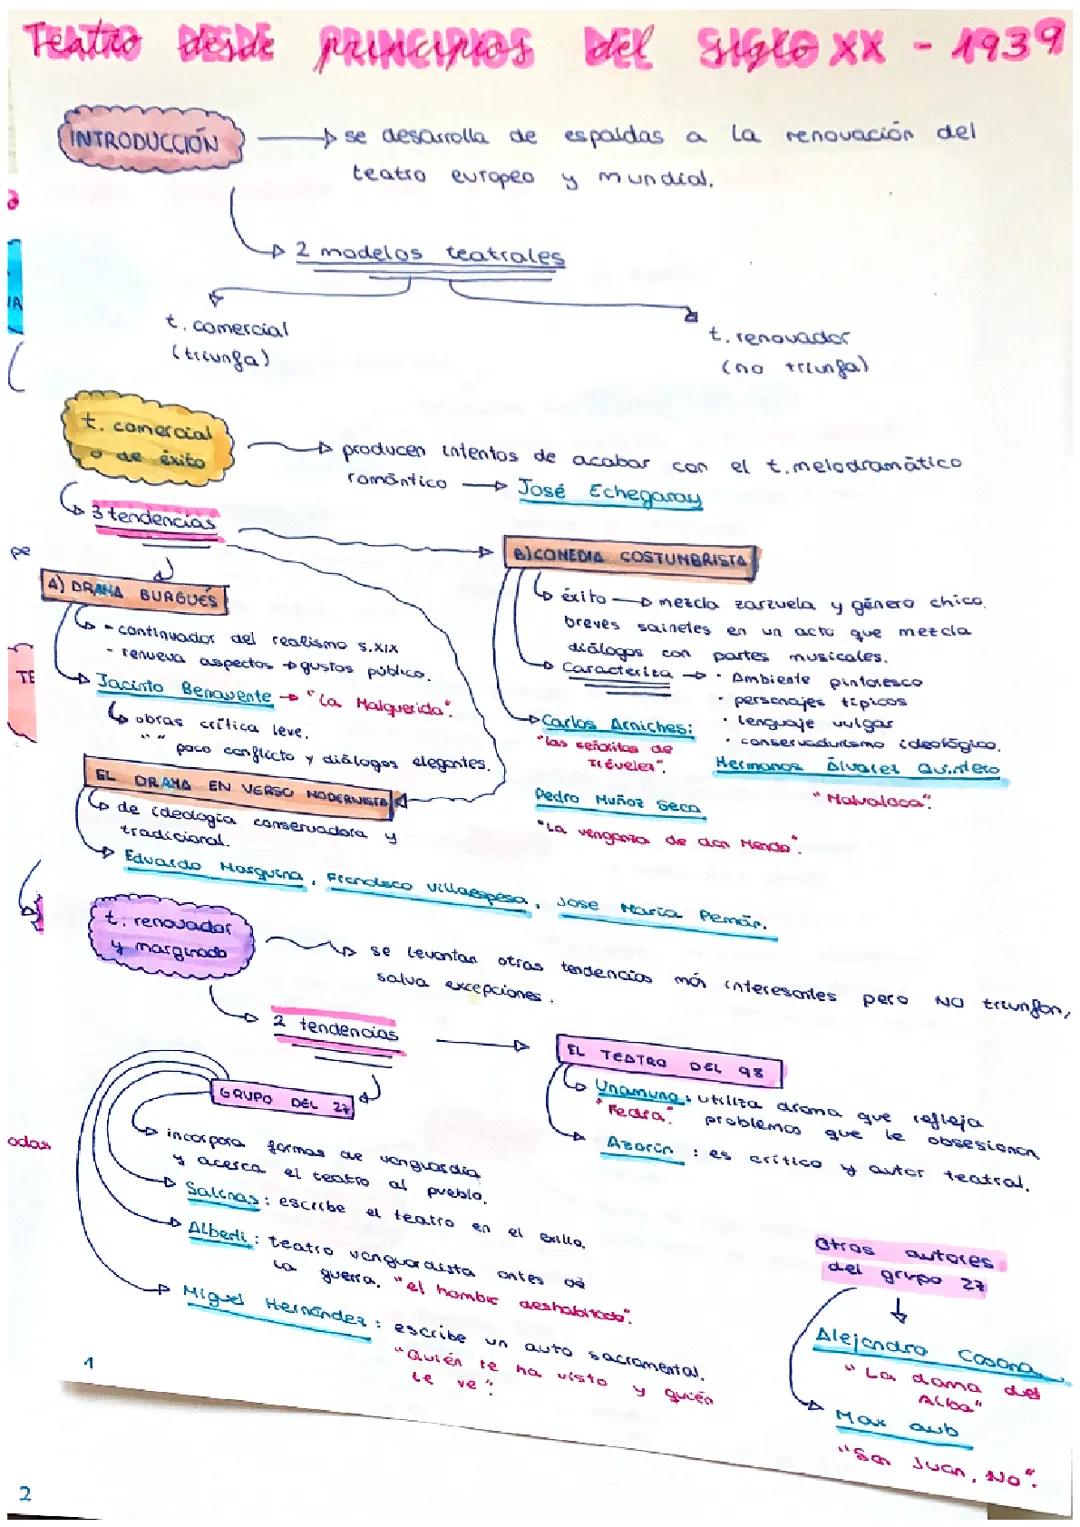 TEATRO DESDE PRINCIPIOS DEL SIGLO XX - 1939
INTRODUCCIÓN
se desarrolla de espaldas a la renovación del
teatro europeo y mundial.
2 modelos teatrales
t. comercial
(triunfa)
t. renovador
(no triunfa)
t. comercial
o de éxito
producen intentos de acabar con el t. melodramático
romántico → José Echegaray
3 tendencias
A) DRAMA BURGUÉS
- continuador del realismo s.XIX
- renueva aspectos → gustos público.
Jacinto Benavente → "La Malquerida".
obras crítica leve.
" " poco conflicto y diálogos elegantes.
B) COMEDIA COSTUMBRISTA
éxito → mezcla zarzuela y género chico.
breves sainetes en un acto que mezcla
diálogos con partes musicales.
Caracteriza → · Ambiente pintoresco
· personajes típicos
· lenguaje vulgar
· conservadurismo ideológico.
Carlos Arniches:
"las señoritas de
Trévelez".
Hermanos Álvarez Quintero
"Malvaloca".
Pedro Muñoz Seca
"La venganza de don Mendo".
EL DRAMA EN VERSO MODERNISTA
de ideología conservadora y
tradicional.
Eduardo Marquina, Francisco Villaespesa, Jose María Pemán.
t. renovador
y marginado
se levantan otras tendencias más interesantes pero NO triunfan,
salva excepciones.
2 tendencias
GRUPO DEL 27
incorpora formas de vanguardia
y acerca el teatro al pueblo.
Salinas: escribe el teatro en el exilio.
Alberti: teatro vanguardista antes de
la guerra. "el hombre deshabitado".
Miguel Hernández: escribe un auto sacramental.
"Quién te ha visto y quién
te ve".
EL TEATRO DEL 98
Unamuno: utiliza drama que refleja
"Fedra". problemas que le obsesionan
Azorín: es crítico y autor teatral.
Otros autores
del grupo 27
Alejandro Casona
"La dama del
Alba"
Max aub
"San Juan, No".
1
2
pe
TE
odas